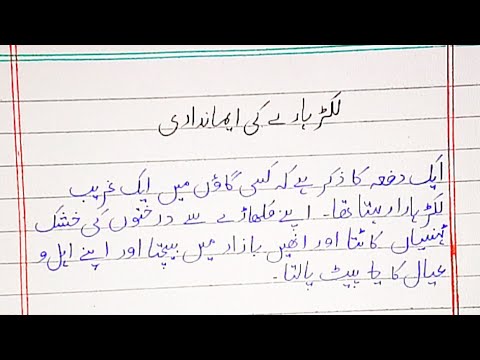 لکڑہارے کی ایمانداری
ایک دفعہ کا ذکر ہے کہ کسی گاؤں میں ایک غریب
لکڑہارا رہتا تھا۔ اپنے کلہاڑے سے درختوں کی خشک
ٹہنیاں کاٹتا اور انھیں بازار میں بیچتا اور اپنے اہل و
عیال کا پیٹ پالتا۔